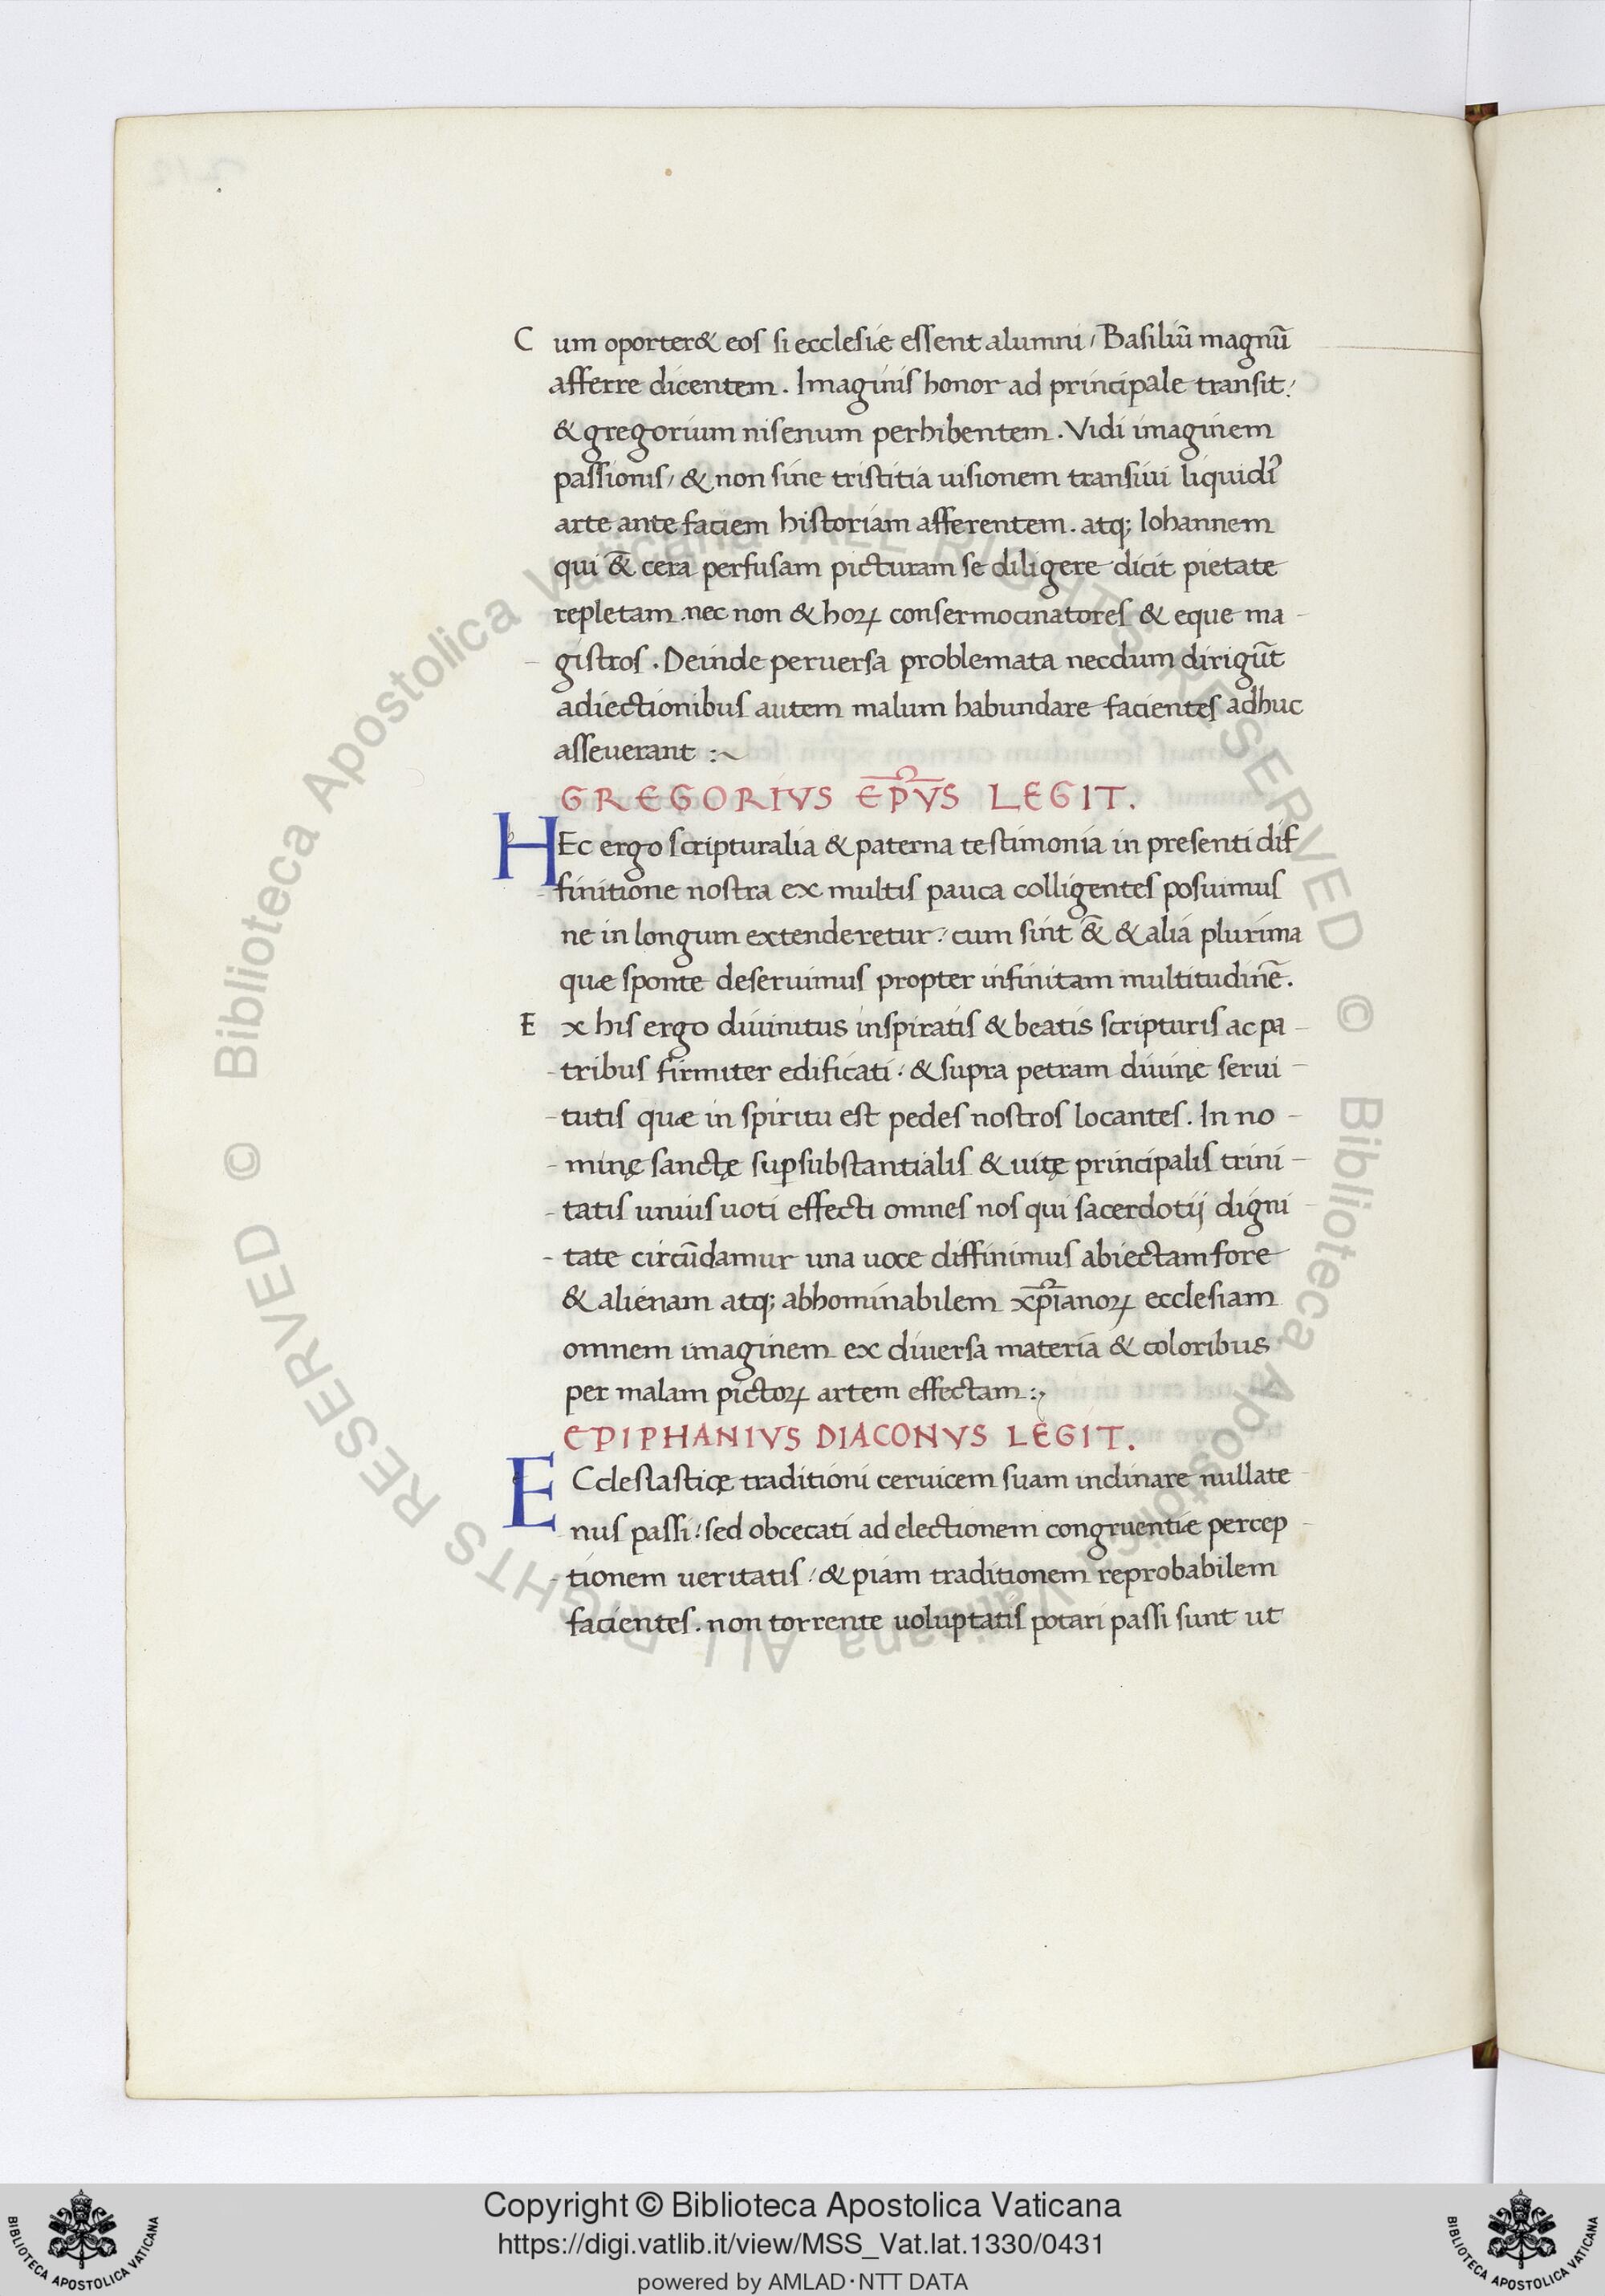 Cum oporter& eos si ecclesiæ essent alumni, Basiliū magnū
afferre dicentem. Imaginis honor ad principale transit:
& gregorium nisenum perhibentem. Vidi imaginem
passionis, & non sine tristitia uisionem transiui liquidr̃
arte ante faciem historiam afferentem. atq; Iohannem
qui &̄ cera perfusam picturam se diligere dicit pietate
repletam. nec non & horꝝ consermocinatores & eque ma-
gistros. Deinde peruersa problemata necdum dirigūt
adiectionibus autem malum habundare facientes adhuc
asseuerant :~
GREGORIVS EP̄VS LEGIT.
HEc ergo scripturalia & paterna testimonia in presenti dif
finitione nostra ex multis pauca colligentes posuimus
ne in longum extenderetur: cum sint &̄ & alia plurima
quæ sponte deseruimus propter infinitam multitudinē.
Ex his ergo diuinitus inspiratis & beatis scripturis ac pa-
-tribus firmiter edificati. & supra petram diuinę serui-
-tutis quæ in spiritu est pedes nostros locantes. In no-
-minę sanctę suꝑsubstantialis & uitę principalis trini-
-tatis unius uoti effecti omnes nos qui sacerdotij digni
-tate circūdamur una uoce diffinimus abiectam fore
& alienam atq; abhominabilem xp̄ianorꝝ ecclesiam
omnem imaginem ex diuersa materia & coloribus
per malam pictorꝝ artem effectam :,
EPIPHANIVS DIACONVS LEGIT.
ECclesiasticę traditioni ceruicem suam inclinare nullate-
nus passi: sed obcecati ad electionem congruentiæ percep-
-tionem ueritatis: & piam traditionem reprobabilem
facientes. non torrente uoluptatis potari passi sunt ut
© Biblioteca Apostolica Vaticana ALL RIGHTS RESERVED © Biblioteca Apostolica Vaticana ALL RIGHTS RESERVED
Copyright © Biblioteca Apostolica Vaticana
https://digi.vatlib.it/view/MSS_Vat.lat.1330/0431
powered by AMLAD·NTT DATA
BIBLIOTECA APOSTOLICA VATICANA
BIBLIOTECA APOSTOLICA VATICANA